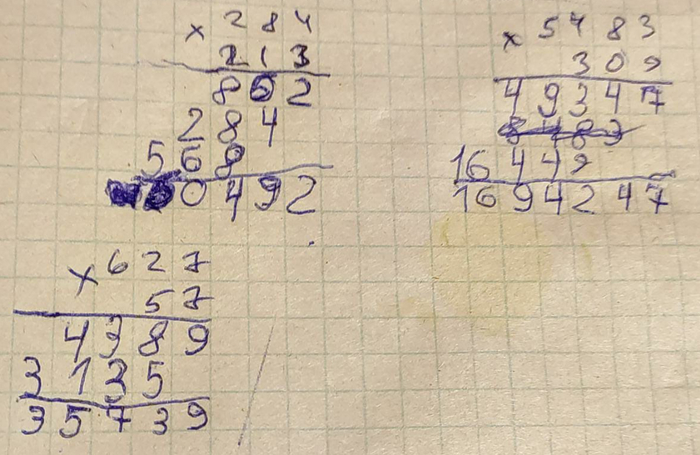 × 2 8 4
2 1 3
8 5 2
2 8 4
5 6 8
0 4 9 2
× 5 4 8 3
3 0 9
4 9 3 4 7
16 4 4 9
16 9 4 2 4 7
× 6 2 7
5 7
4 3 8 9
3 1 3 5
3 5 7 3 9